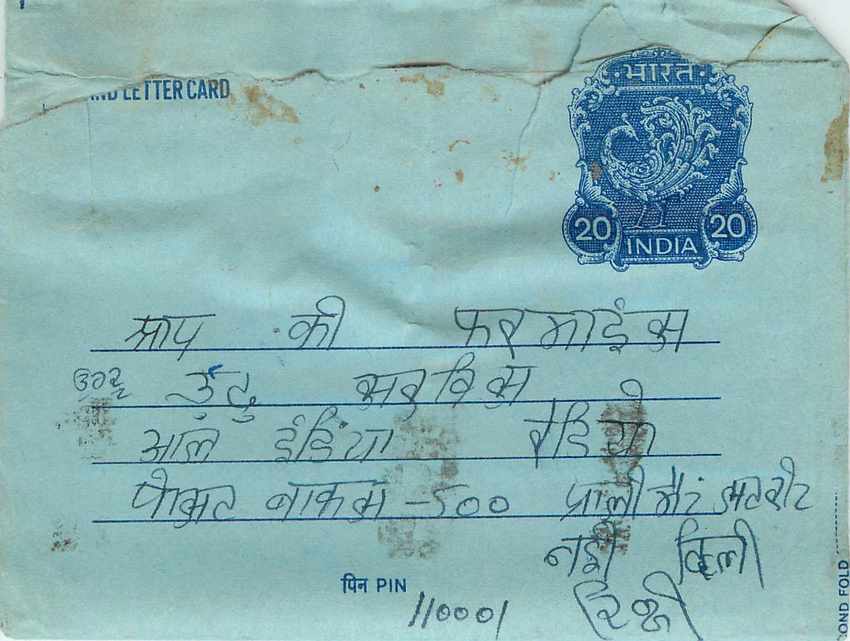 भारत
ND LETTER CARD
20 20
INDIA
आप की फरमाईस
उरदू
सरविस
आल इंडिया रेडियो
पोसट बाकस -500 प्रालीमैंट सटरीट
नई दिली
पिन PIN 110001
OND FOLD